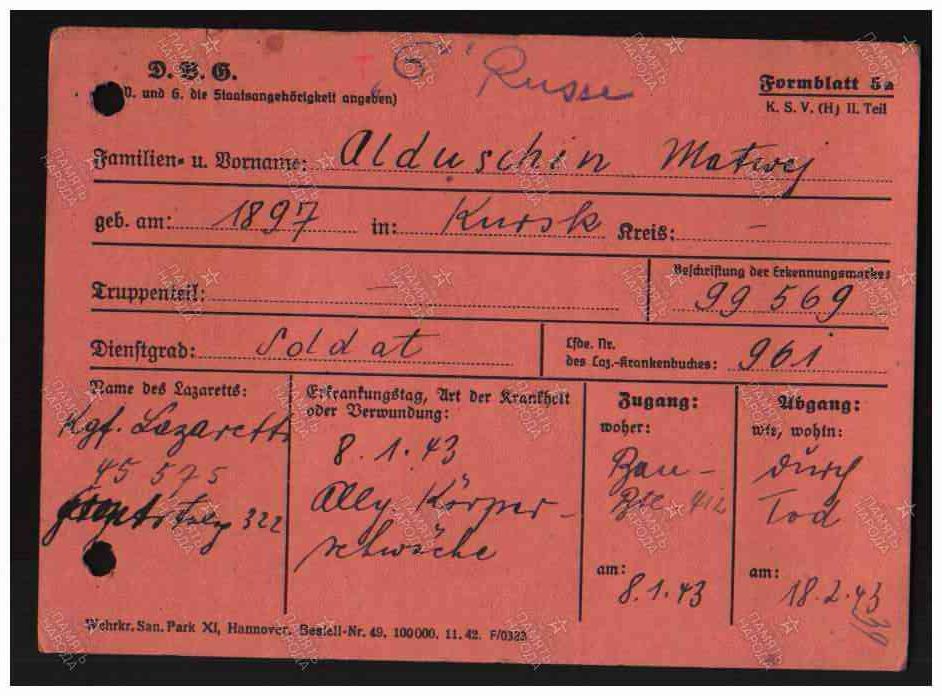 D. B. G.
G Russe
D. und G. die Staatsangehörigkeit angeben)
Formblatt 5a
K. S. V. (H) II. Teil
Familien- u. Vorname: Alduschin Matwej
geb. am: 1897 in: Kursk Kreis: —
Truppenteil: —
Beschriftung der Erkennungsmarke:
99 569
Dienstgrad: Soldat
Lfde. Nr.
des Laz.-Krankenbuches: 961
Name des Lazaretts:
Kgf. Lazarett
45 575
322
Erkrankungstag, Art der Krankheit
oder Verwundung:
8. 1. 43
Allg. Körper-
schwäche
Zugang:
woher:
Bau-
Btl. 412
am:
8.1.43
Abgang:
wie, wohin:
durch
Tod
am:
18.2.43
Wehrkr. San. Park XI, Hannover. Bestell-Nr. 49. 100000. 11. 42. F/0323
ПАМЯТЬ НАРОДА